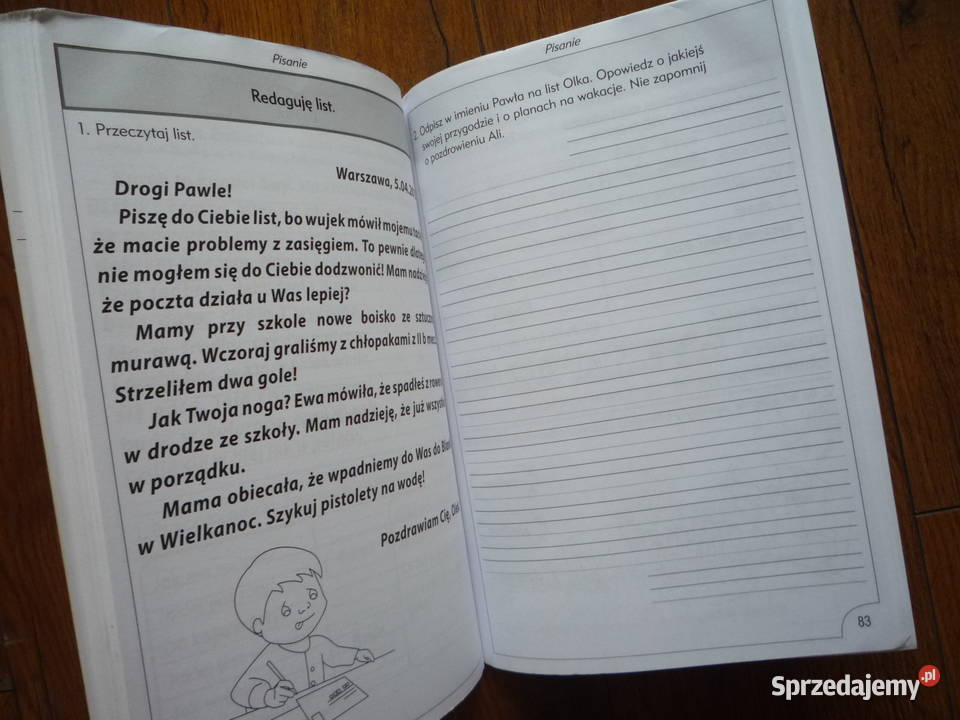 Pisanie
Redaguję list.
1. Przeczytaj list.
Warszawa, 5.04.
Drogi Pawle!
Piszę do Ciebie list, bo wujek mówił mojemu
że macie problemy z zasięgiem. To pewnie
nie mogłem się do Ciebie dodzwonić! Mam
że poczta działa u Was lepiej?
Mamy przy szkole nowe boisko ze
murawą. Wczoraj graliśmy z chłopakami z II b
Strzeliłem dwa gole!
Jak Twoja noga? Ewa mówiła, że spadłeś z
w drodze ze szkoły. Mam nadzieję, że już
w porządku.
Mama obiecała, że wpadniemy do Was do
w Wielkanoc. Szykuj pistolety na wodę!
Pozdrawiam Cię,
Pisanie
2. Odpisz w imieniu Pawła na list Olka. Opowiedz o jakiejś
swojej przygodzie i o planach na wakacje. Nie zapomnij
o pozdrowieniu Ali.
83
Sprzedajemy.pl